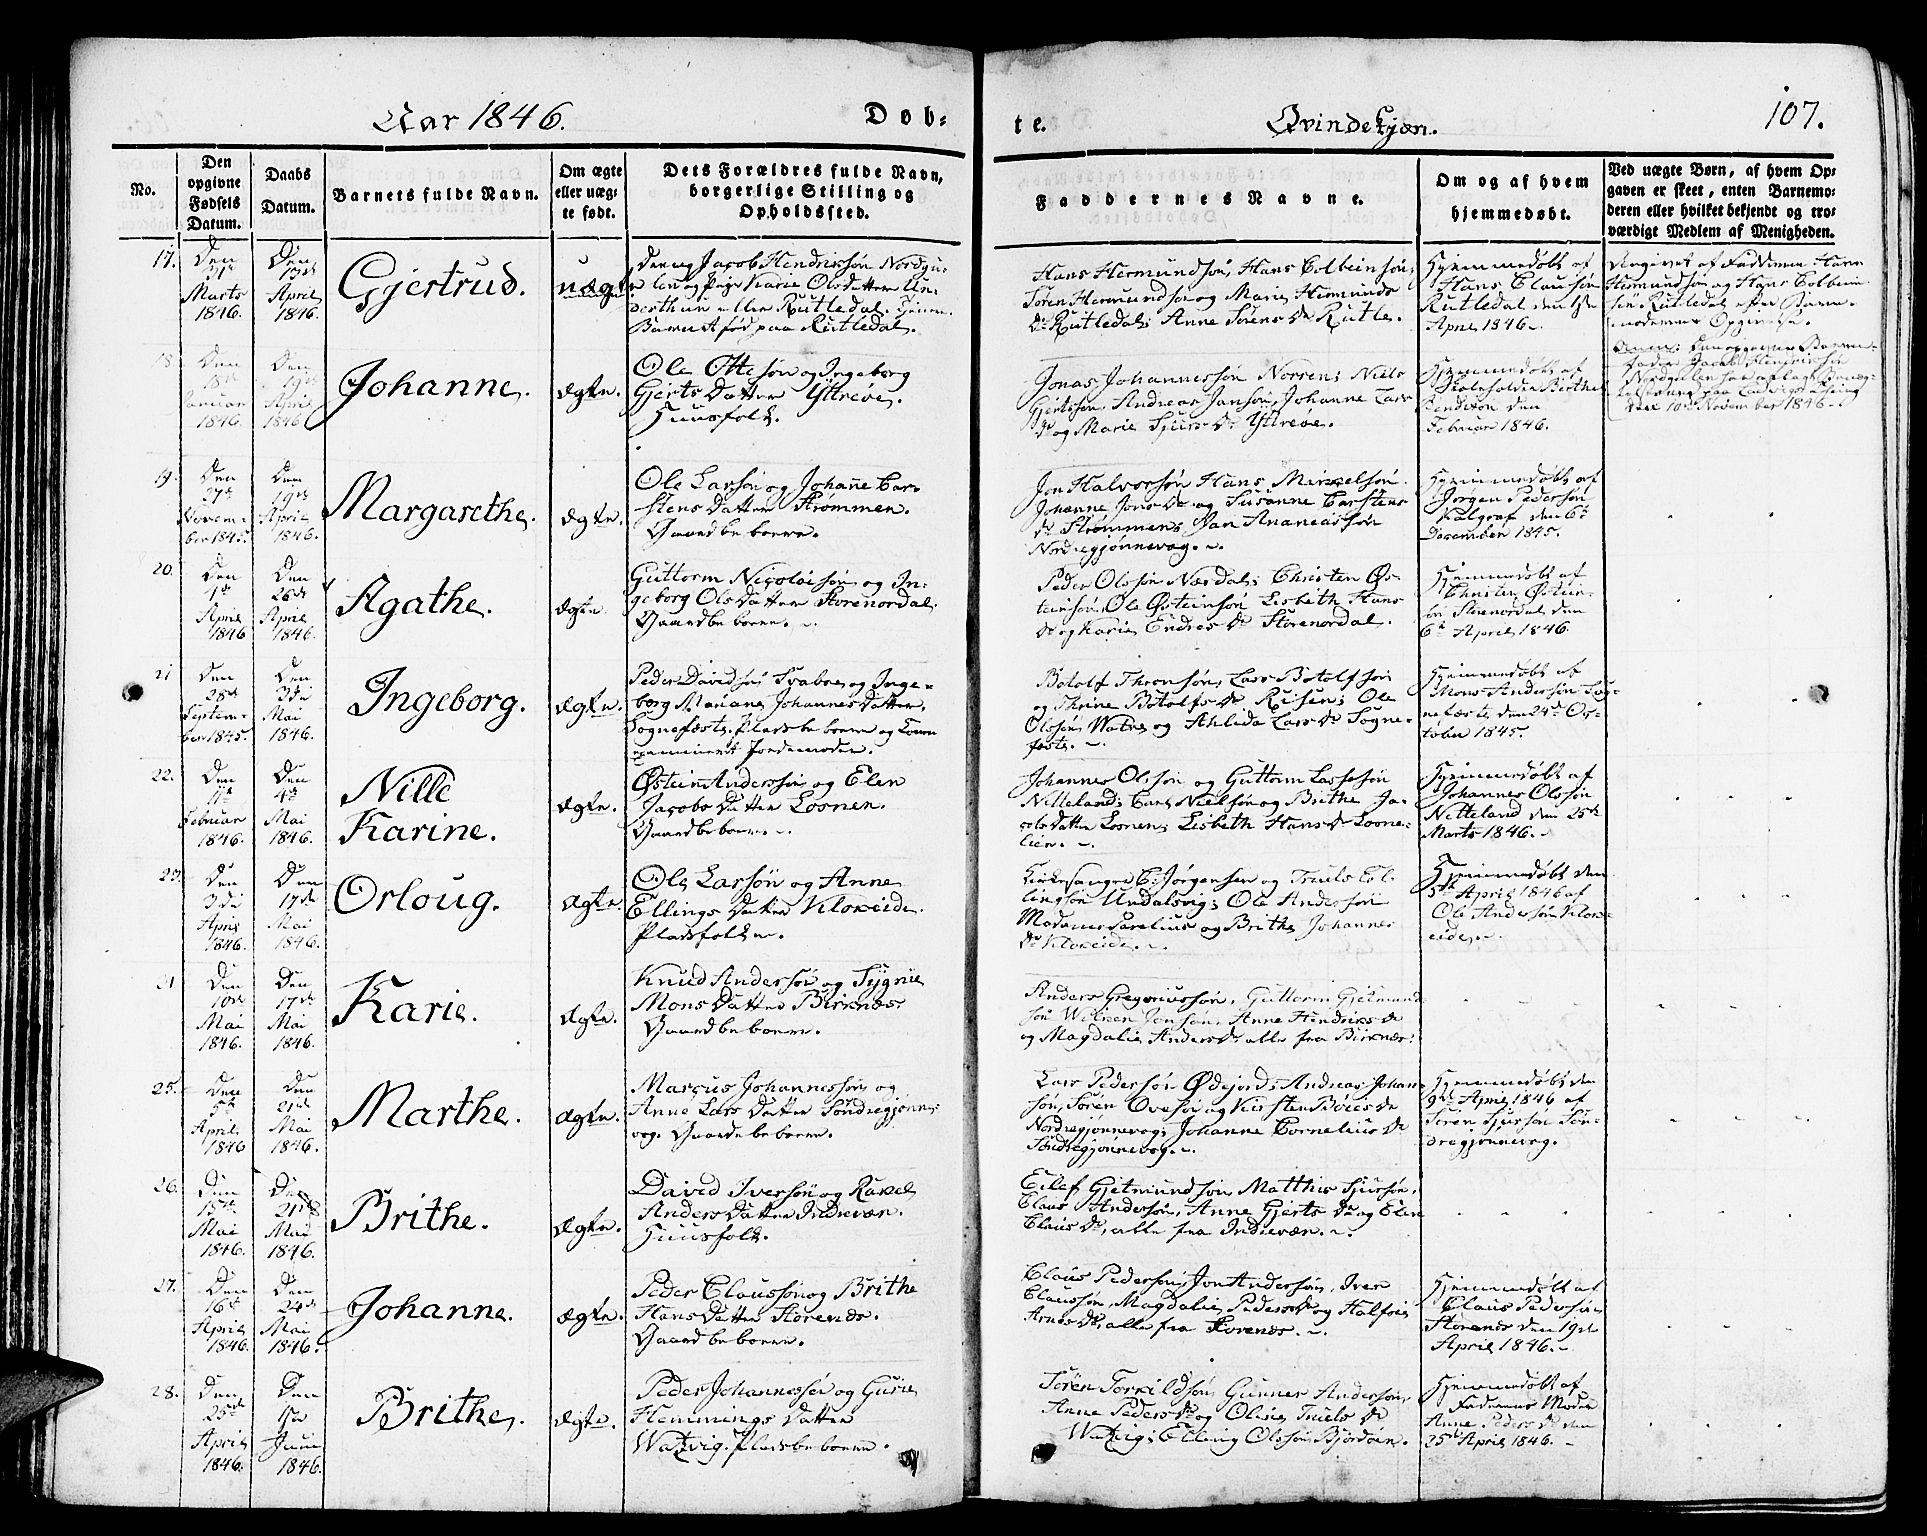 Aar 1846.
Døb-
te.
Qvindekjøn.
107.
No.
Den opgivne Fødsels Datum.
Daabs Datum.
Barnets fulde Navn.
Om ægte eller uægte født.
Dets Forældres fulde Navn, borgerlige Stilling og Opholdssted.
Faddernes Navne.
Om og af hvem hjemmedøbt.
Ved uægte Børn, af hvem Opgaven er skeet, enten Barnemoderen eller hvilket bekjendt og troværdigt Medlem af Menigheden.
17.
Den
Marts
1846.
Den
13de
April
1846.
Gjertrud.
uægte.
Jacob Hendriksøn
Pige Karie Olsdatter
Rutledal.
Barnet født paa Rutledal.
Hans Hermundsøn, Hans Colbeinsøn,
Søren Hermundsøn og Marie Hermunds
Dr Rutledal; Anne Sørens Dr Rutle.
Hjemmedøbt af
Hans Clausøn
Rutledal den 1ste
April 1846.
Angivet af Fadderne Hans
Hermundsøn og Hans Colbein-
søn Rutledal efter Barne-
moderens Opgivelse.
Jacob Hendriksøn
10de November 1846.
18
Den
Januar
1846.
Den
19de
April
1846
Johanne.
Ægte.
Ole Ottesøn og Ingeborg
Gjerts Datter Yttreøe.
Huusfolk.
Jonas Johannessøn Noreen; Niels
Gjertsøn, Andreas Jansøn, Johanne Lars
Dr og Marie Sjurs Dr Yttreøe.
Hjemmedøbt af
Skoleholder Berthel
Bendixøn den
Februar 1846.
19.
Den
27de
Novem-
ber 1845.
Den
19de
April
1846.
Margarethe.
Ægte.
Ole Larsøn og Johanne Car-
stens Datter Strømmen.
Gaardbeboere.
Jon Halvorsøn Hans Mikkelsøn
Johanne Jons Dr og Susanne Carstens
Dr Strømmen; Jan Ananiassøn
Nordregjønnevog.
Hjemmedøbt af
Jørgen Pedersøn
Kalgraf den 6te
December 1845.
20.
Den
1ste
April
1846
Den
26de
April
1846.
Agathe.
Ægte.
Guttorm Nicolaisøn og In-
geborg Ols Datter Storenordal.
Gaardbeboere.
Peder Olsøn Nærdal; Christen Øs-
teinsøn, Ole Østeinsøn Lisbeth Hans
Dr og Karie Endres Dr Storenordal.
Hjemmedøbt af
Christen Østein-
søn Storenordal den
6te April 1846.
21
Den
28de
Septem-
ber 1845.
Den
3die
Mai
1846.
Ingeborg.
Ægte.
Peder Davidsøn Svabøe, og Inge-
borg Mariane Johannes Datter,
Sognefæste, Pladsbeboere og
examineret Jordemoder.
Botolf Thronsøn, Lars Botolfsøn
og Thrine Botolfs Dr Riisen; Ole
Olsøn Watne og Ahlida Lars Dr Sogne-
fæste.
Hjemmedøbt af
Mons Andersøn Sog-
nefæste, den 24de Oc-
tober 1845.
22.
Den
Februar
1846.
Den
4de
Mai
1846.
Nille
Karine.
Ægte.
Østein Andersøn og Elen
Jacobs Datter Loonen.
Gaardbeboere.
Johannes Olsøn og Guttorm Lassesøn
Nitteland; Carl Nielsøn og Brithe Ja-
cobs Datter Loonen; Lisbeth Hans Dr Loone-
lien.
Hjemmedøbt af
Johannes Olsøn
Nitteland den 25de
Marts 1846.
23.
Den
3die
April
1846.
Den
17de
Mai
1846.
Orloug.
Ægte.
Ole Larsøn og Anne
Ellings Datter Kloxeide.
Pladsfolk.
Kirkesanger C: Jørgensen og Truels El-
lingsøn Undalsvig; Ole Andersøn
Madame Sarelius og Brithe Johannes
Dr Kloxeide.
Hjemmedøbt den
5te April 1846 af
Ole Andersøn Klox-
eide.
24
Den
10de
Mai
1846.
Den
17de
Mai
1846.
Karie.
Ægte.
Knud Andersøn og Sygnie
Mons Datter Birknæs
Gaardbeboere.
Anders Gregoriussøn, Guttorm Gjetmund-
søn Willen Jonsøn, Anne Hendriks Dr
og Magdalie Anders Dr alle fra Birknæs.
25.
Den
5te
April
1846
Den
21de
Mai
1846.
Marthe.
Ægte.
Marcus Johannessøn og
Anne Lars Datter Søndregjønne-
vog. Gaardbeboere.
Lars Pedersøn Ødejord; Andreas Johan-
søn, Søren Ovesøn og Kirsten Børes Dr
Nordregjønnevog; Johanne Cornelius Dr
Søndregjønnevog.
Hjemmedøbt den
9de April 1846 af
Søren Sjursøn Søn-
dregjønnevog.
26.
Den
15de
Mai
1846
Den
21de
Mai
1846.
Brithe.
Ægte.
David Iversøn og Rakel
Anders Datter Indrevær.
Huusfolk.
Eilef Gjetmundsøn, Matthis Sjursøn,
Claus Andersøn, Anne Gjerts Dr og Elen
Claus Dr, alle fra Indrevær.
27.
Den
16de
April
1846.
Den
24de
Mai
1846.
Johanne.
Ægte.
Peder Claussøn og Brithe
Hans Datter Storenæs.
Gaardbeboere.
Claus Pedersøn, Jon Andersøn, Iver
Claussøn, Magdalie Peders Dr og Halfrie
Arnes Dr, alle fra Storenæs.
Hjemmedøbt af
Claus Pedersøn
Storenæs den 19de
April 1846.
28.
Den
25de
April
1846.
Den
1ste
Juni
1846.
Brithe.
Ægte.
Peder Johannessøn og Gurie
Hemmings Datter
Watsvig. Pladsbeboere.
Søren Torkildsøn, Gunner Andersøn,
Anne Peders Dr og Oline Truels Dr
Watsvig; Elling Olssøn Bjordøen.
Hjemmedøbt af
Faderens Moder
Anne Peders Dr den
25de April 1846.